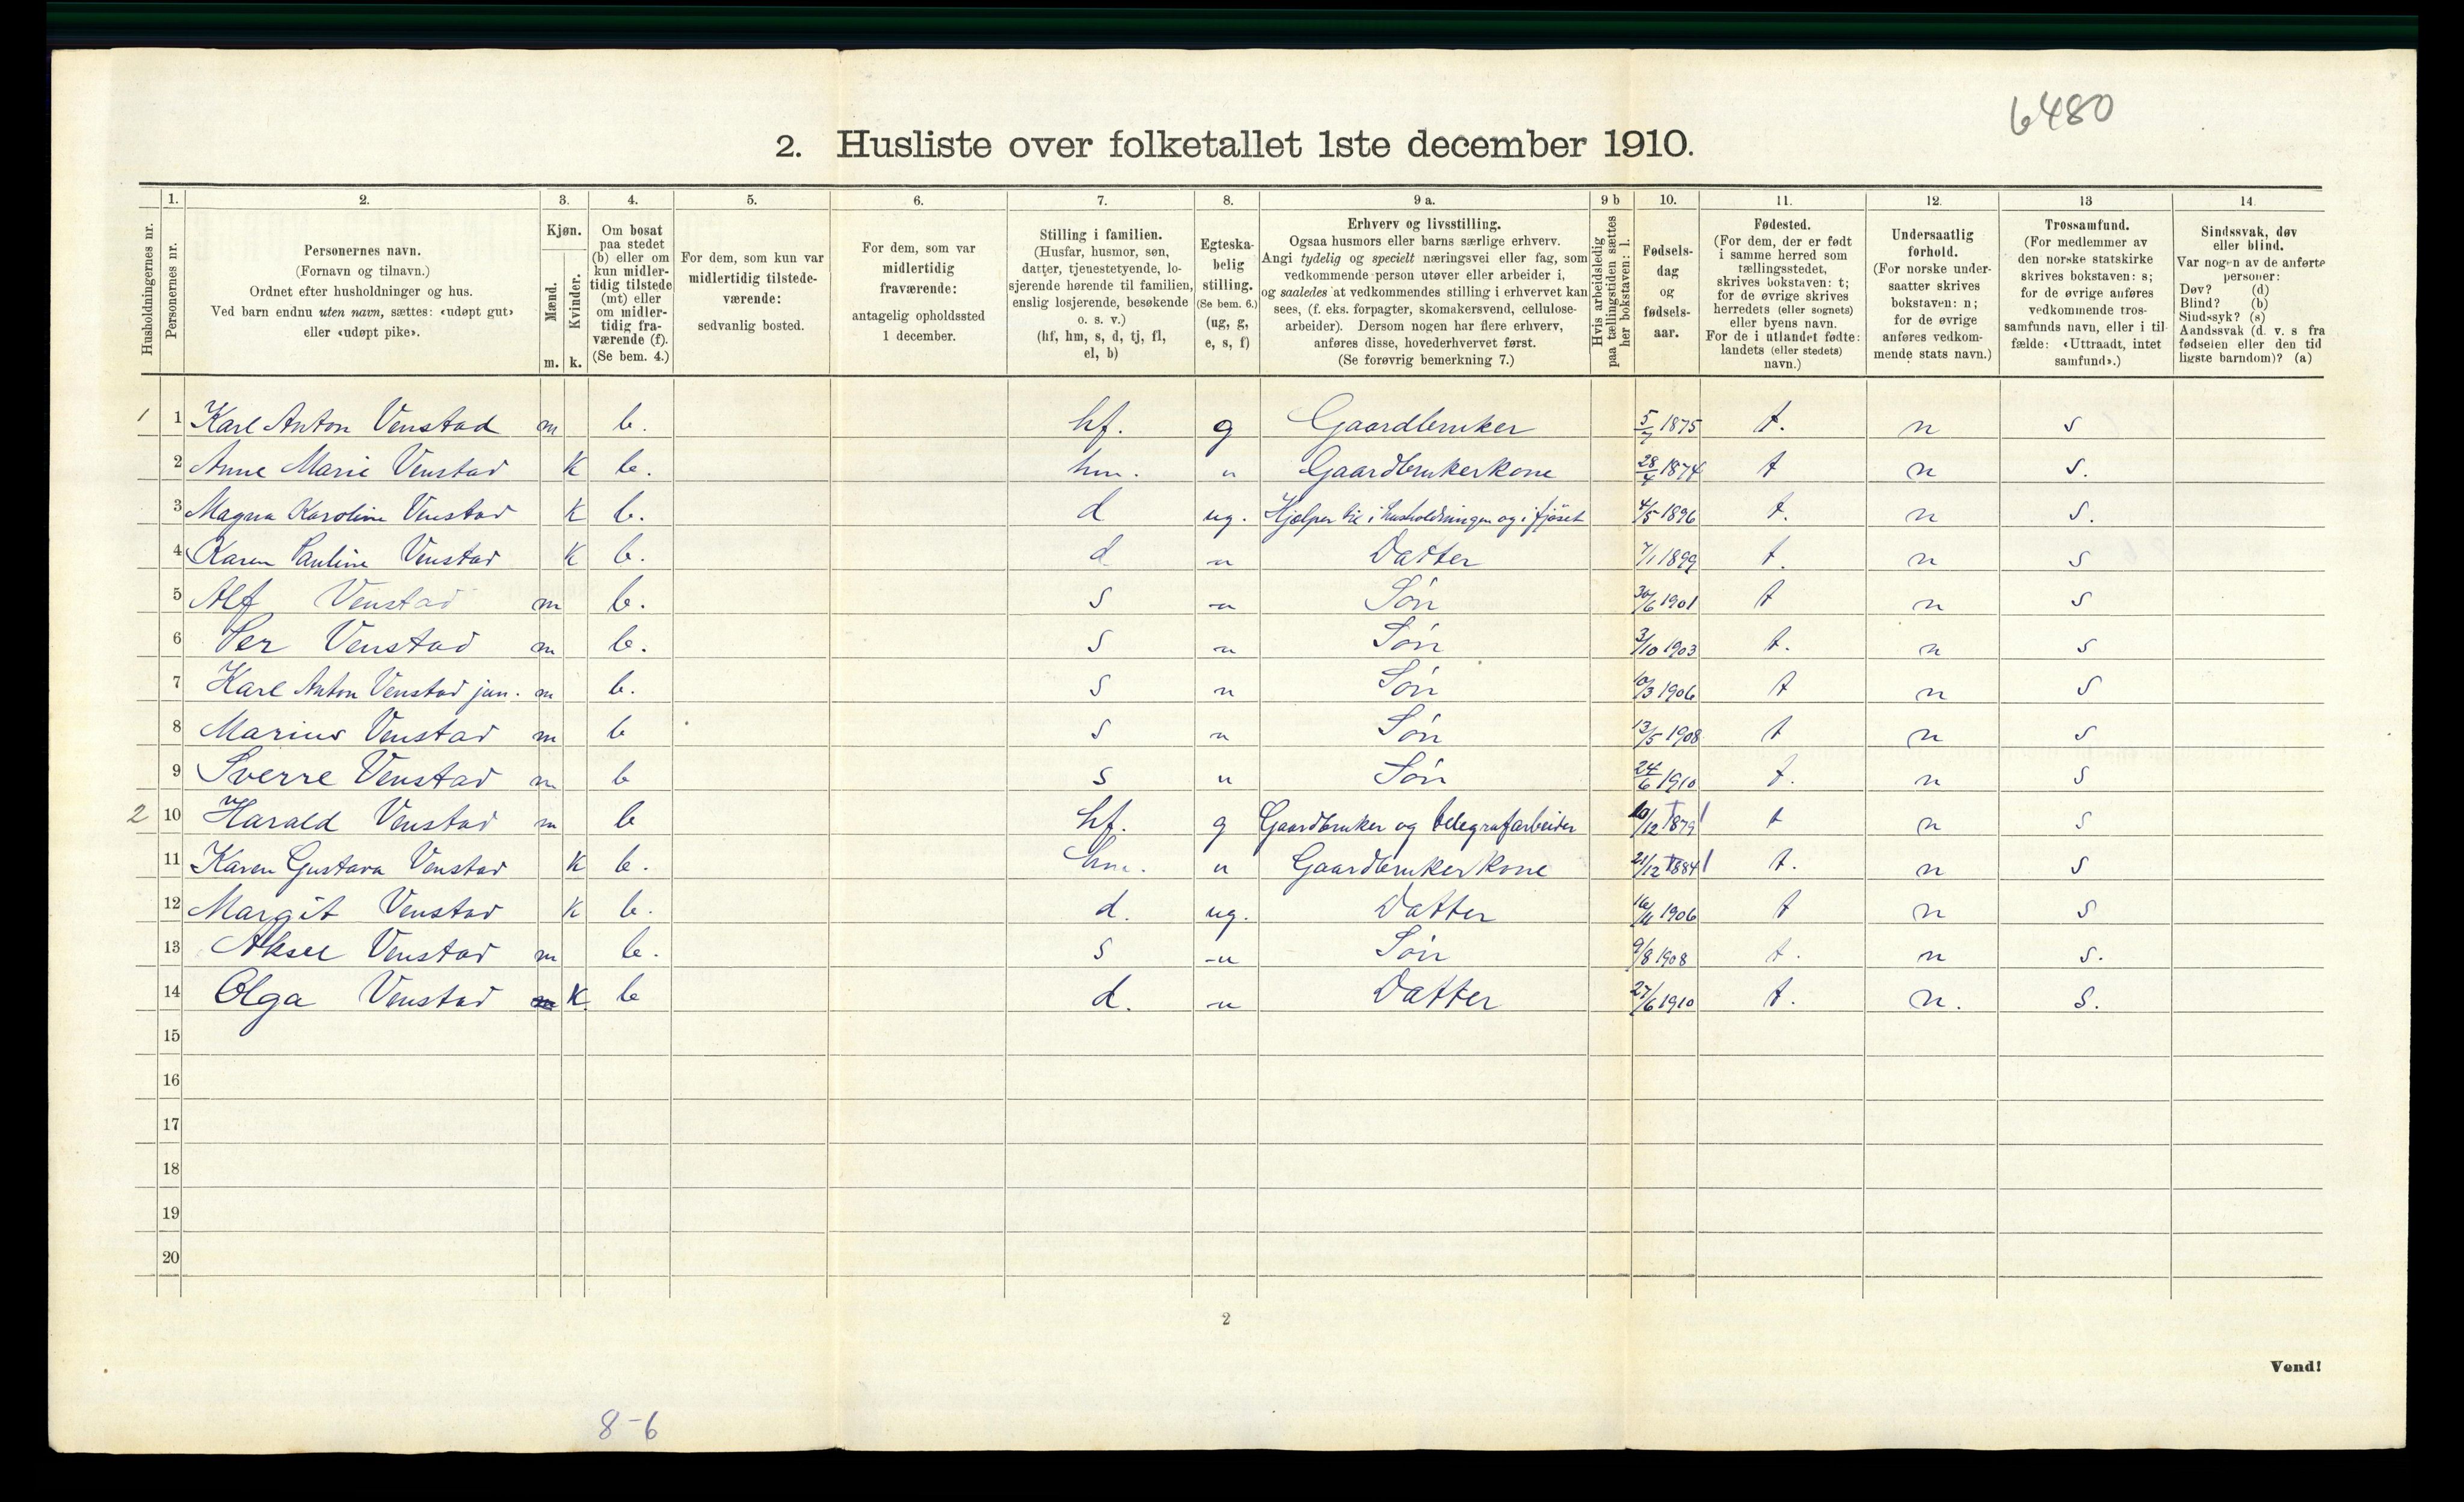 6480
2. Husliste over folketallet 1ste december 1910.
Husholdningernes nr.
1.
Personernes nr.
2.
Personernes navn.
(Fornavn og tilnavn.)
Ordnet efter husholdninger og hus.
Ved barn endnu uten navn, sættes: «udøpt gut»
eller «udøpt pike».
3.
Kjøn.
Mænd.
Kvinder.
m. k.
4.
Om bosat
paa stedet
(b) eller om
kun midler-
tidig tilstede
(mt) eller
om midler-
tidig fra-
værende (f).
(Se bem. 4.)
5.
For dem, som kun var
midlertidig tilstede-
værende:
sedvanlig bosted.
6.
For dem, som var
midlertidig
fraværende:
antagelig opholdssted
1 december.
7.
Stilling i familien.
(Husfar, husmor, søn,
datter, tjenestetyende, lo-
sjerende hørende til familien,
enslig losjerende, besøkende
o. s. v.)
(hf, hm, s, d, tj, fl,
el, b)
8.
Egteska-
belig
stilling.
(Se bem. 6.)
(ug, g,
e, s, f)
9 a.
Erhverv og livsstilling.
Ogsaa husmors eller barns særlige erhverv.
Angi tydelig og specielt næringsvei eller fag, som
vedkommende person utøver eller arbeider i,
og saaledes at vedkommendes stilling i erhvervet kan
sees, (f. eks. forpagter, skomakersvend, cellulose-
arbeider). Dersom nogen har flere erhverv,
anføres disse, hovederhvervet først.
(Se forøvrig bemerkning 7.)
9 b
Hvis arbeidsledig
paa tællingstiden sættes
her bokstaven: l.
10.
Fødsels-
dag
og
fødsels-
aar.
11.
Fødested.
(For dem, der er født
i samme herred som
tællingsstedet,
skrives bokstaven: t;
for de øvrige skrives
herredets (eller sognets)
eller byens navn.
For de i utlandet fødte:
landets (eller stedets)
navn.)
12.
Undersaatlig
forhold.
(For norske under-
saatter skrives
bokstaven: n;
for de øvrige
anføres vedkom-
mende stats navn.)
13
Trossamfund.
(For medlemmer av
den norske statskirke
skrives bokstaven: s;
for de øvrige anføres
vedkommende tros-
samfunds navn, eller i til-
fælde: «Uttraadt, intet
samfund».)
14.
Sindssvak, døv
eller blind.
Var nogen av de anførte
personer:
Døv? (d)
Blind? (b)
Sindssyk? (s)
Aandssvak (d. v. s fra
fødselen eller den tid
ligste barndom)? (a)
1 1 Karl Anton Venstad m b. hf. g Gaardbruker 5/7 1875 t. n s
2 Anne Marie Venstad K b. hm. " Gaardbrukerkone 28/4 1874 t n s.
3 Magna Karoline Venstad K b. d ug. Hjælper til i husholdningen og i fjöset 4/5 1896 t. n s.
4 Karen Pauline Venstad K b. d " Datter 7/1 1899 t. n s
5 Alf Venstad m b. s " Sön 30/6 1901 t n s
6 Per Venstad m b. s " Sön 3/10 1903 t. n s
7 Karl Anton Venstad jun. m b. s " Sön 10/3 1906 t n s
8 Marius Venstad m b s " Sön 13/5 1908 t n s
9 Sverre Venstad m b s " Sön 24/6 1910 t. n s
2 10 Harald Venstad m b hf. g Gaardbruker og telegrafarbeider 10/12 1879 t n s
11 Karen Gustava Venstad K b. hm. " Gaardbrukerkone 21/12 1884 t. n s
12 Margit Venstad K b. d. ug. Datter 16/11 1906 t n s
13 Aksel Venstad m b. s " Sön 9/8 1908 t. n s.
14 Olga Venstad m K b d. " Datter 27/6 1910 t. n. s.
15
16
17
18
19
20
2
Vend!
8-6